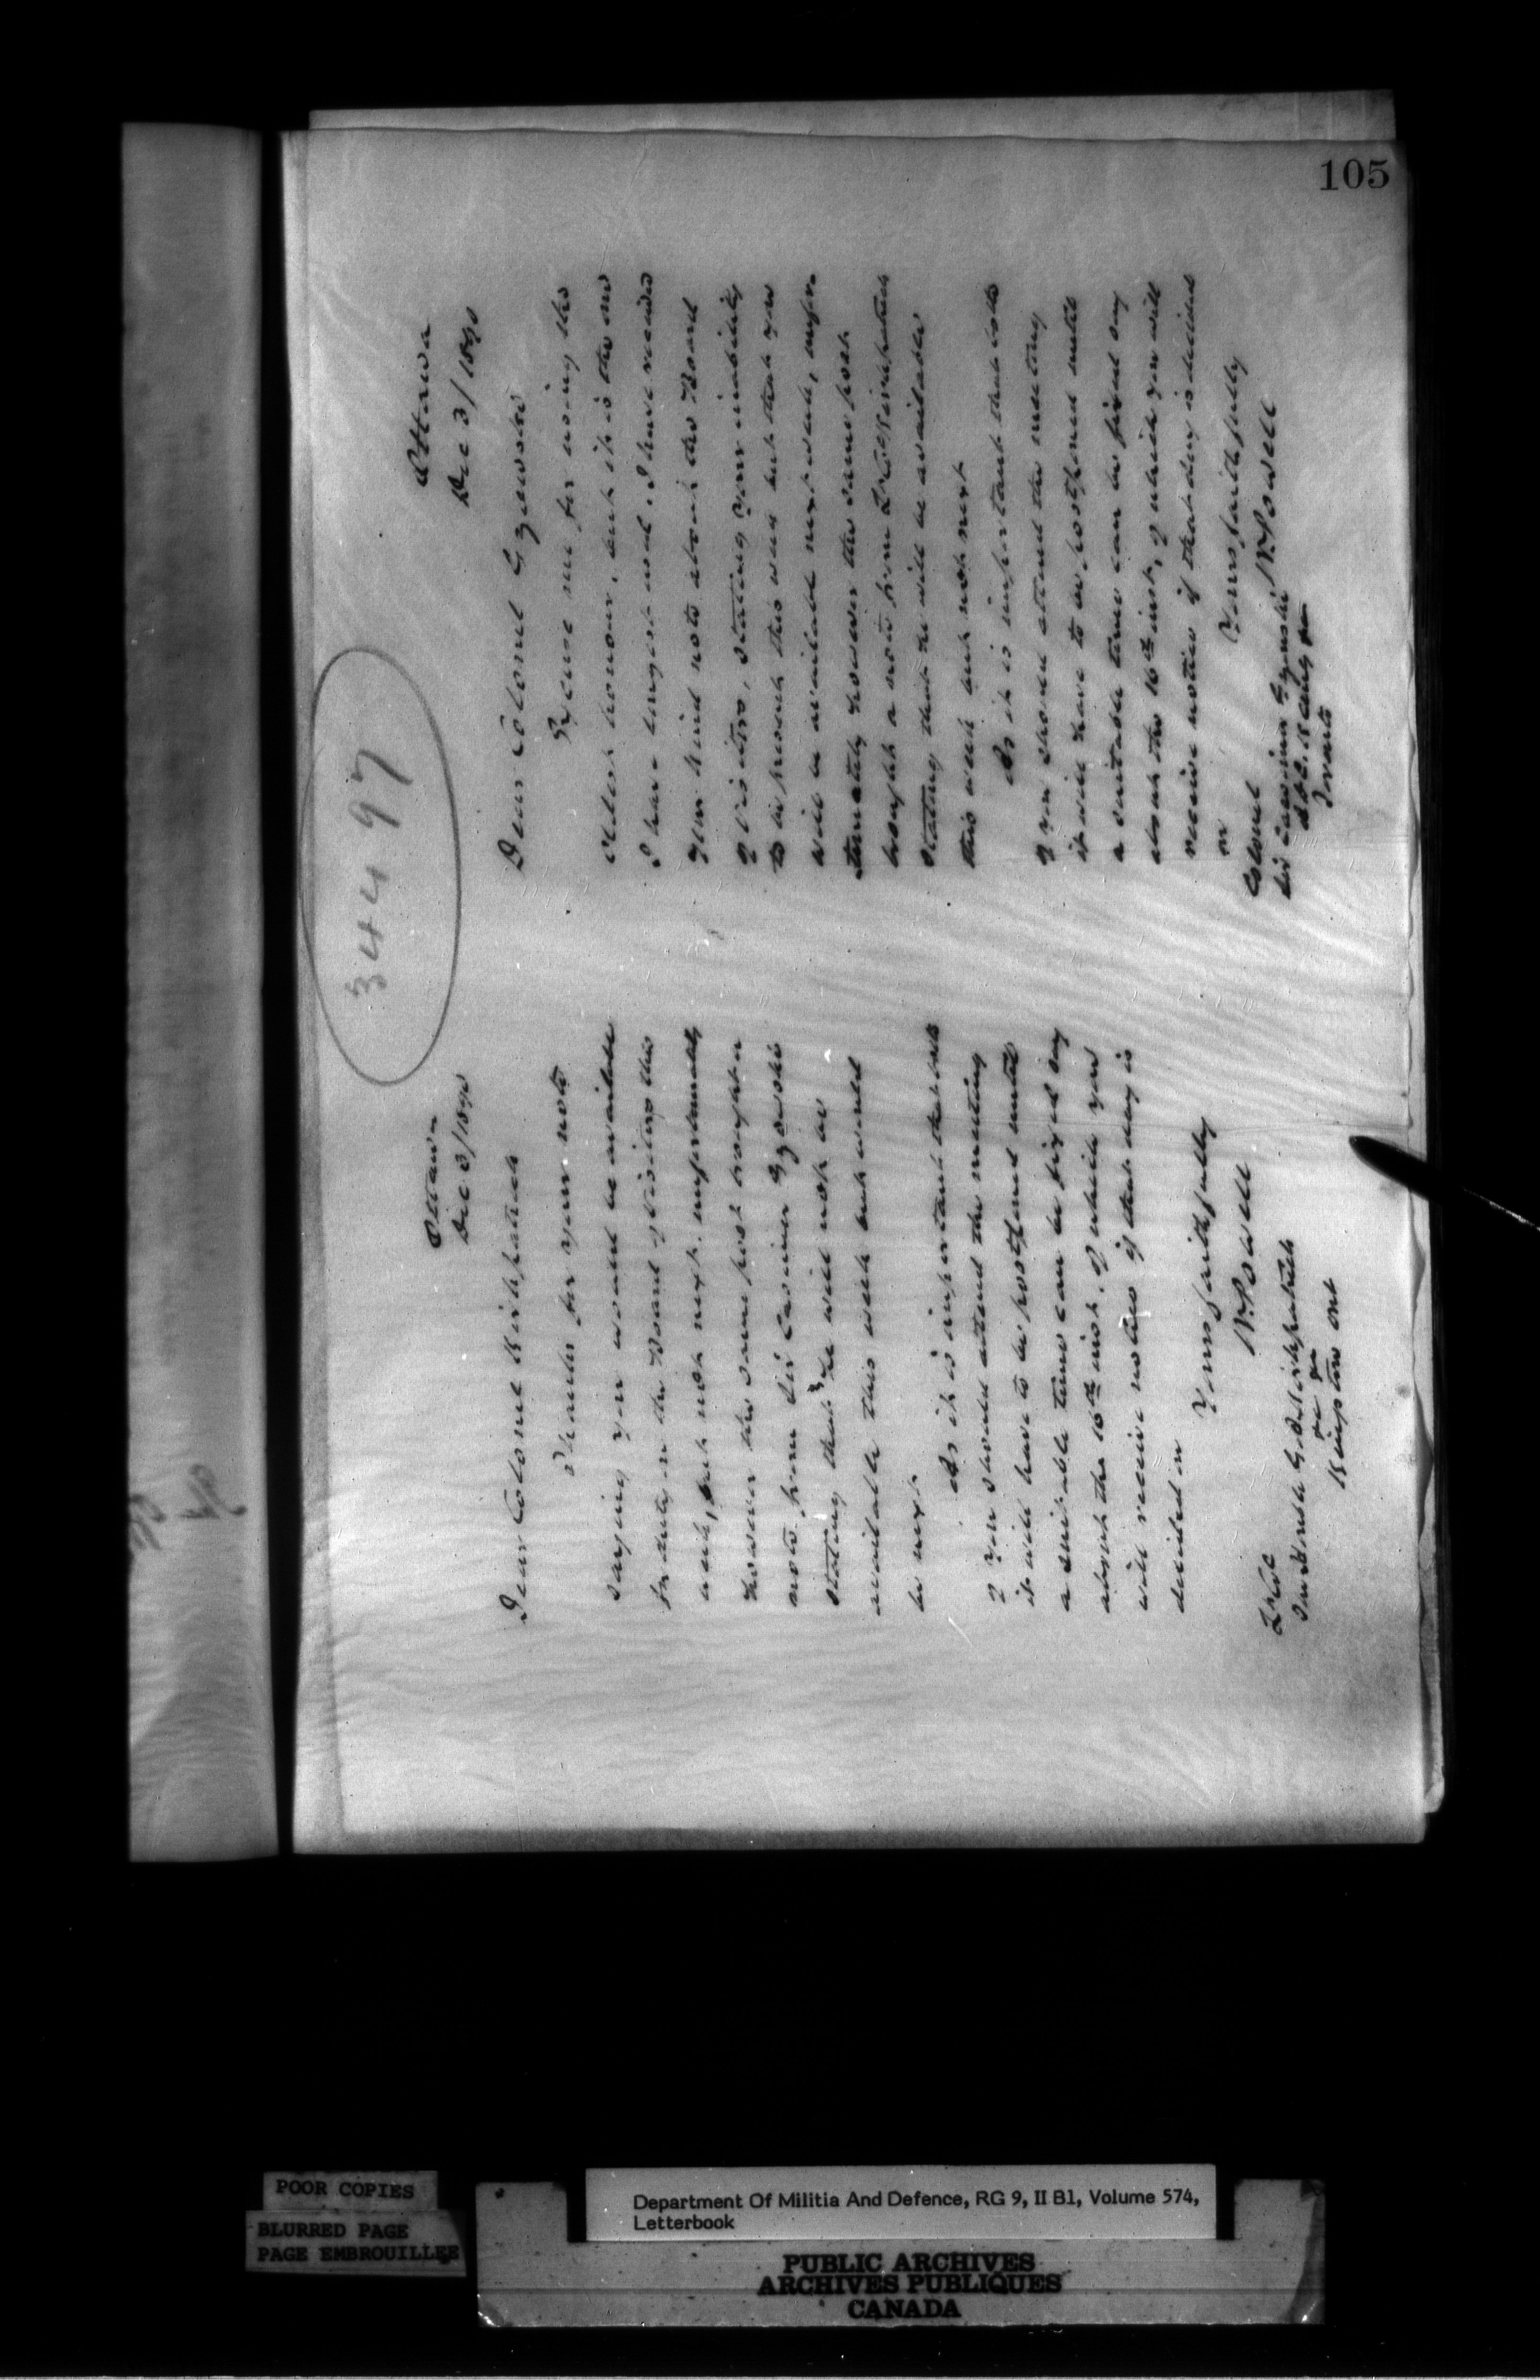 105
34497
Ottawa
Dec 3/1890
Dear Colonel Kirkpatrick
Thanks for your note
saying you would be available
for duty on the Board of Visitors this
week, but not next. unfortunately
however the same post brought a
note from Sir Casimir Gzowski
stating that he will not be
available this week but would
be next
As it is important that both
of you should attend the meeting
it will have to be postponed until
a suitable time can be fixed say
about the 16th inst. of which you
will receive notice if that day is
decided on
Yours faithfully
W. Powell
Lt Col
Kirkpatrick
Kingston Ont
Ottawa
Dec 3/1890
Dear Colonel Gzowski
Excuse me for using the
oldest honour, but it is the one
I have longest used. I have received
your kind note about the Board
of Visitors, stating your inability
to be present this week but that you
will be available next week, unfor-
tunately however the same post
brought a note from Lt Col Kirkpatrick
stating that he will be available
this week but not next
As it is important that both
of you should attend the meeting
it will have to be postponed until
a suitable time can be fixed say
about the 16th inst, of which you will
receive notice if that day is decided
on
Yours faithfully
W. Powell
Colonel
Sir Casimir Gzowski
Toronto
POOR COPIES
BLURRED PAGE
PAGE EMBROUILLEE
Department Of Militia And Defence, RG 9, II B1, Volume 574,
Letterbook
PUBLIC ARCHIVES
ARCHIVES PUBLIQUES
CANADA